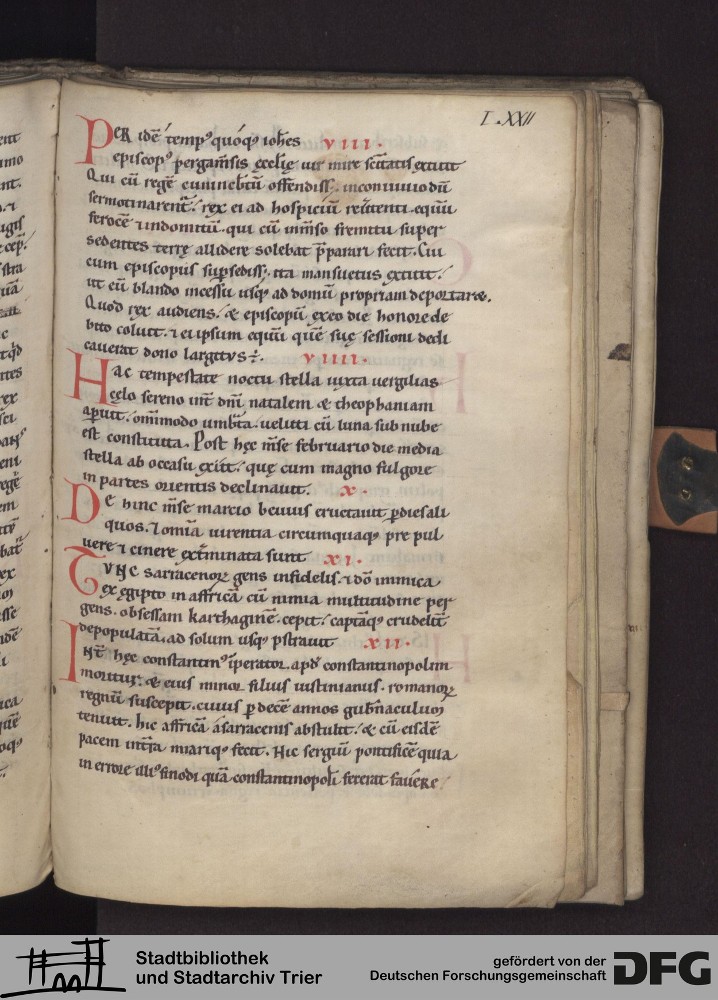 I .XXII
PER idē temp⁹ quoq; ioh̄es VIII.
episcop⁹ pergam̄sis ęcclię uir mire sc̄itatis extitit
Qui cū regē cunincb̄tū offendiss; in conuiuio dū
sermocinarent᷑. rex ei ad hospiciū reu̓tenti equū
ferocē & indomitū. qui cū im̄so fremitu super
sedentes terrę allidere solebat p̄parari fecit. Cui
cum episcopus sup̱sediss;. ita mansuetus extitit.
ut eū blando incessu usq; ad domū propriam deportaret.
Quod rex audiens. & episcopū ex eo die honore de
bito coluit. & ei ipsum equū quē suę sessioni dedi
cauerat dono largitvs ÷. VIIII.
Hac tempestate noctu stella iuxta uergilias
cęlo sereno int̓ dn̄i natalem & theophaniam
apparuit. om̄imodo umbata. ueluti cū luna sub nube
est constituta. Post hęc m̄se februario die media
stella ab occasu exiit. quę cum magno fulgore
in partes orientis declinauit. X.
De hinc m̄se marcio beuius eructauit p̱ dies ali
quos. & om̄ia uirentia circumquaq; pre pul
uere & cinere ext̓minata sunt XI.
Tvnc sarracenoꝝ gens infidelis. & dō inimica
ex ęgipto in affricā cū nimia multitudine per
gens. obsessam karthaginē. cepit. captāq; crudelit̓
depopulatā. ad solum usq; pstrauit XII.
INt̓ hęc constantin⁹ īperator. apd̓ constantinopolim
moritur. & eius minor filius iustinianus. romanoꝝ
regnū suscepit. cuius p̱ decē annos gub̓naculum
tenuit. hic affricā a sarracenis abstulit. & cū eisdē
pacem in t̓ra mariq; fecit. Hic sergiū pontificē quia
in errore illi⁹ sinodi quā constantinopoli fecerat fauere
Stadtbibliothek
und Stadtarchiv Trier
gefördert von der
Deutschen Forschungsgemeinschaft
DFG